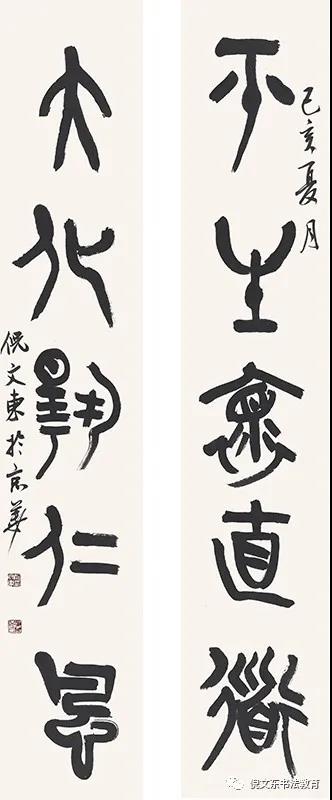 己亥夏月
平生懷直道
大化揚仁風
倪文東於京華
倪文东书法教育